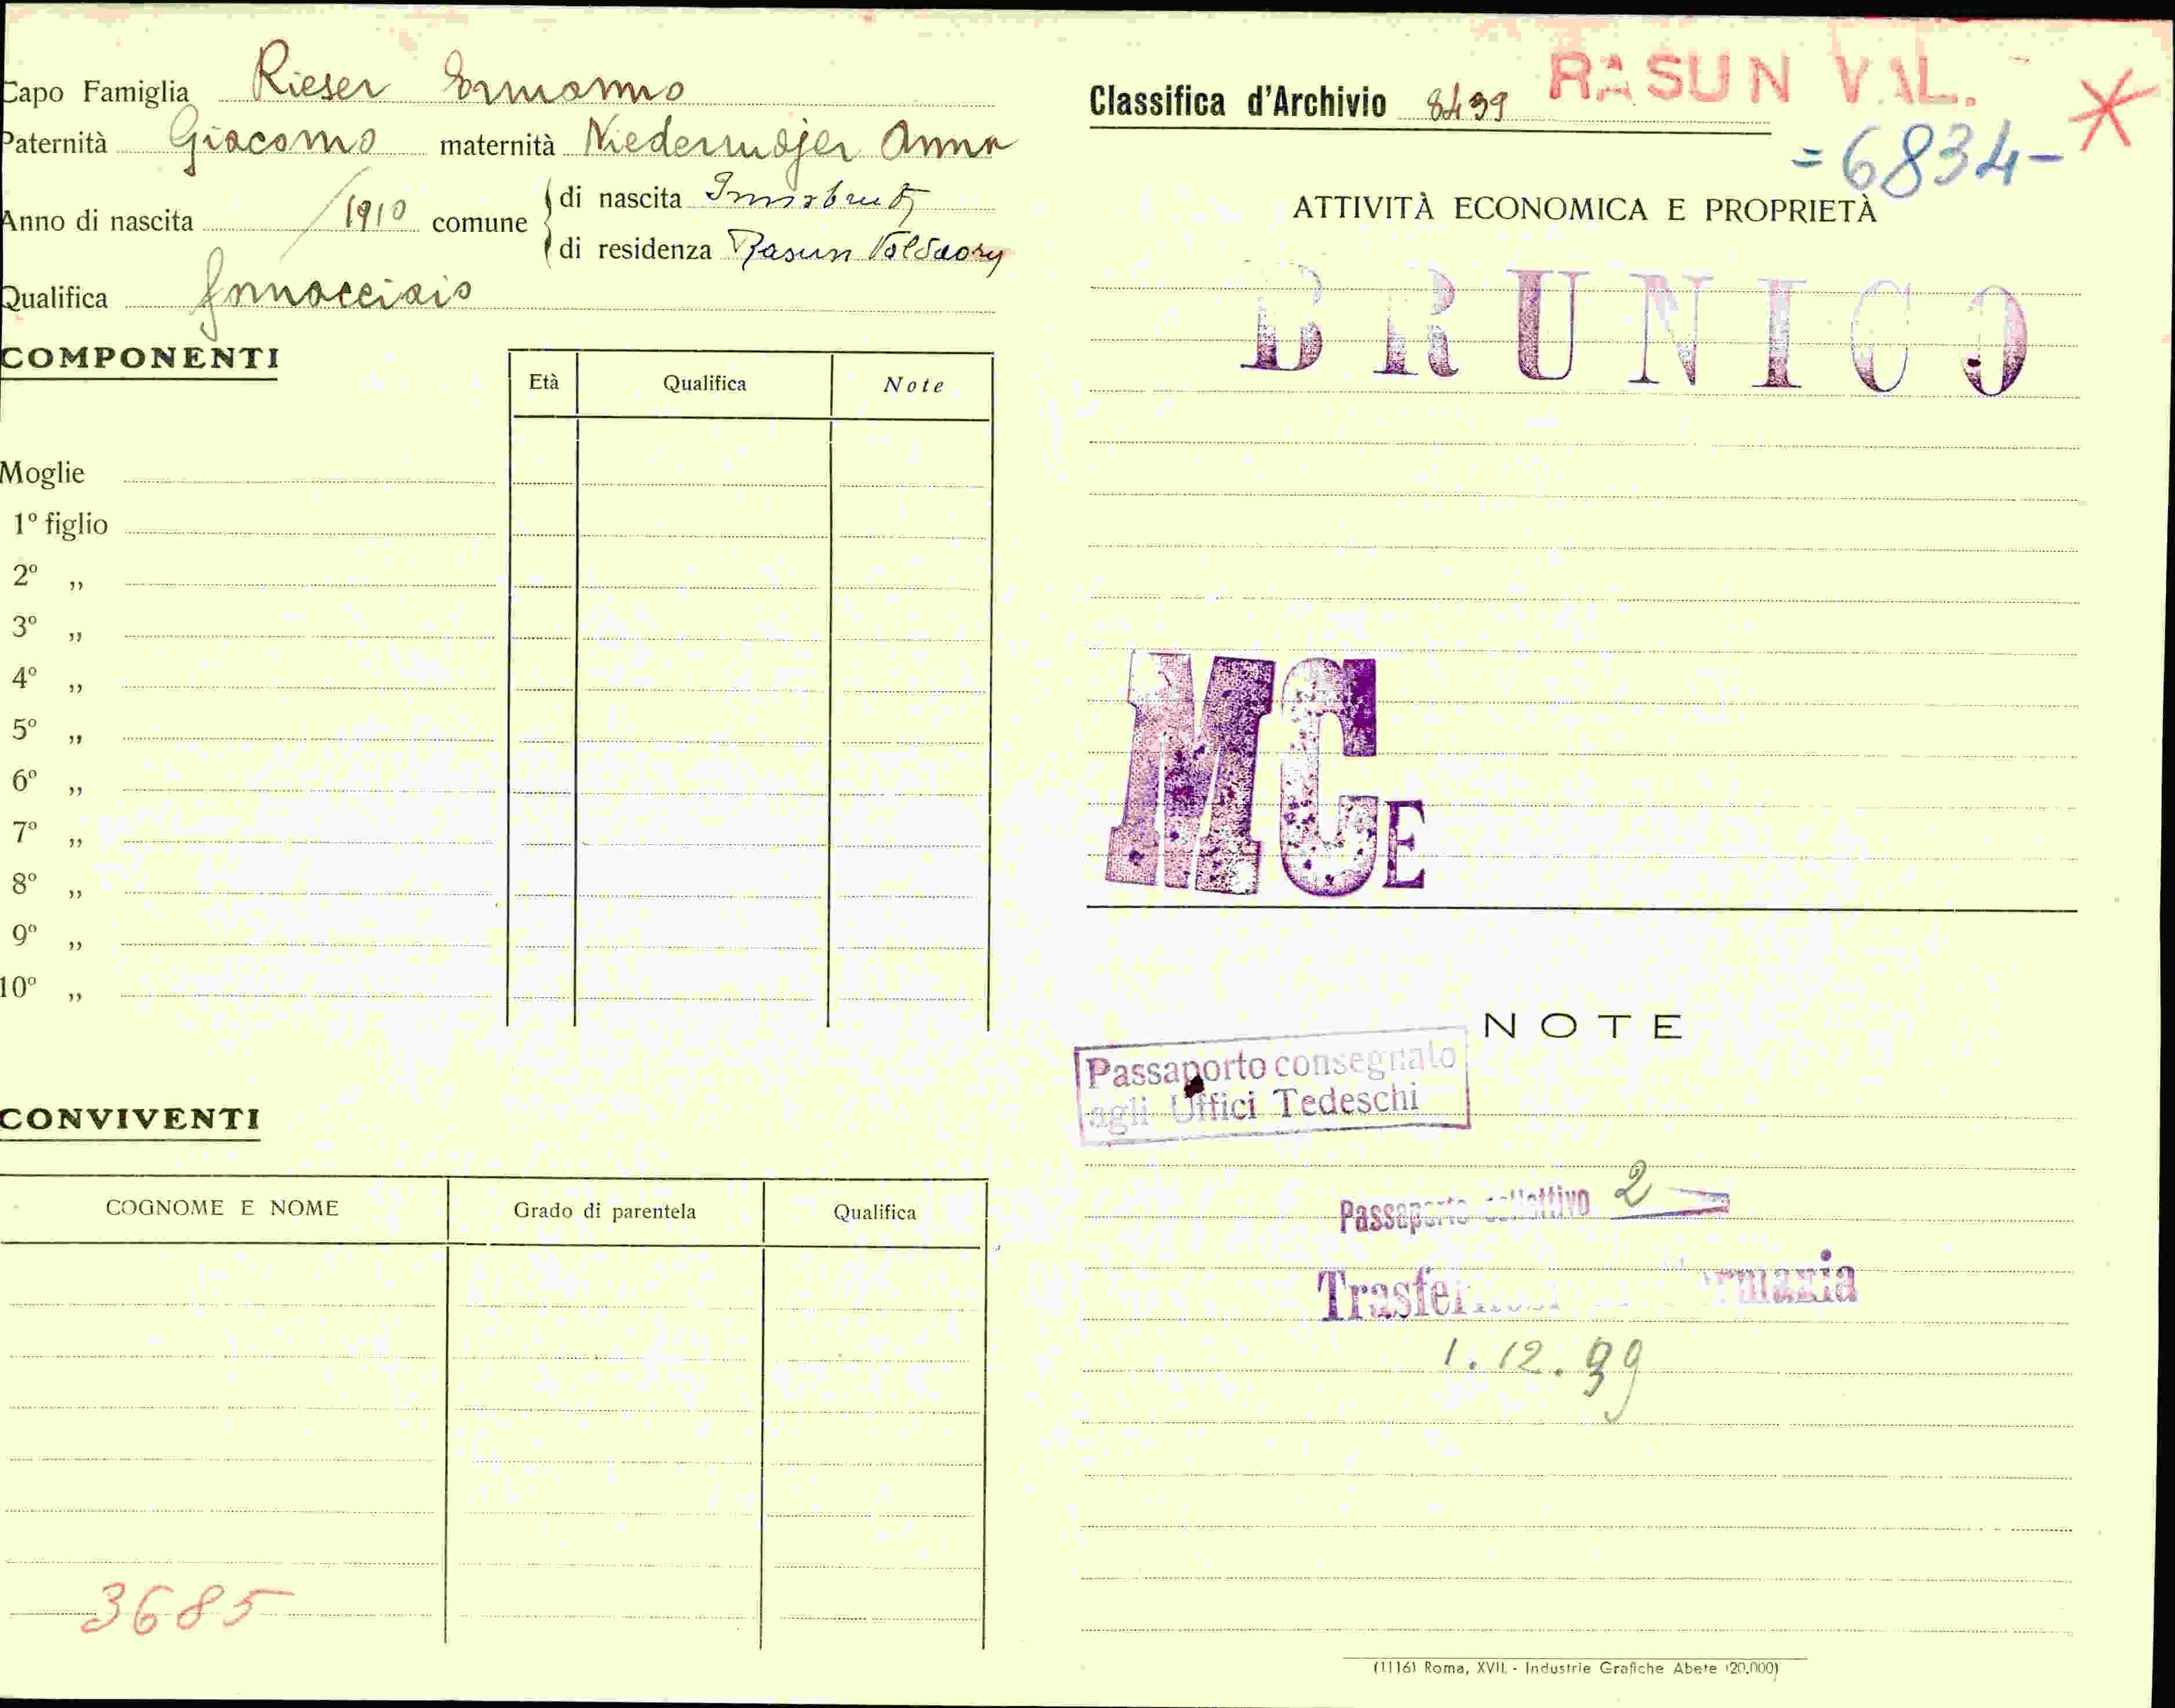 Capo Famiglia Rieser Ermanno
Paternità Giacomo maternità Niedermajer Anna
Anno di nascita /1910 comune
di nascita
di residenza Rasun Valdaora
Qualifica
COMPONENTI
Età Qualifica Note
Moglie
1º figlio
2º „
3º „
4º „
5º „
6º „
7º „
8º „
9º „
10º „
CONVIVENTI
COGNOME E NOME Grado di parentela Qualifica
3685
Classifica d'Archivio 8499 RASUN VAL.
=6834-
ATTIVITÀ ECONOMICA E PROPRIETÀ
BRUNICO
MCE
NOTE
Passaporto consegnato
agli Uffici Tedeschi
Passaporto collettivo 2
1.12.39
(1116) Roma, XVII. - Industrie Grafiche Abete (20.000)